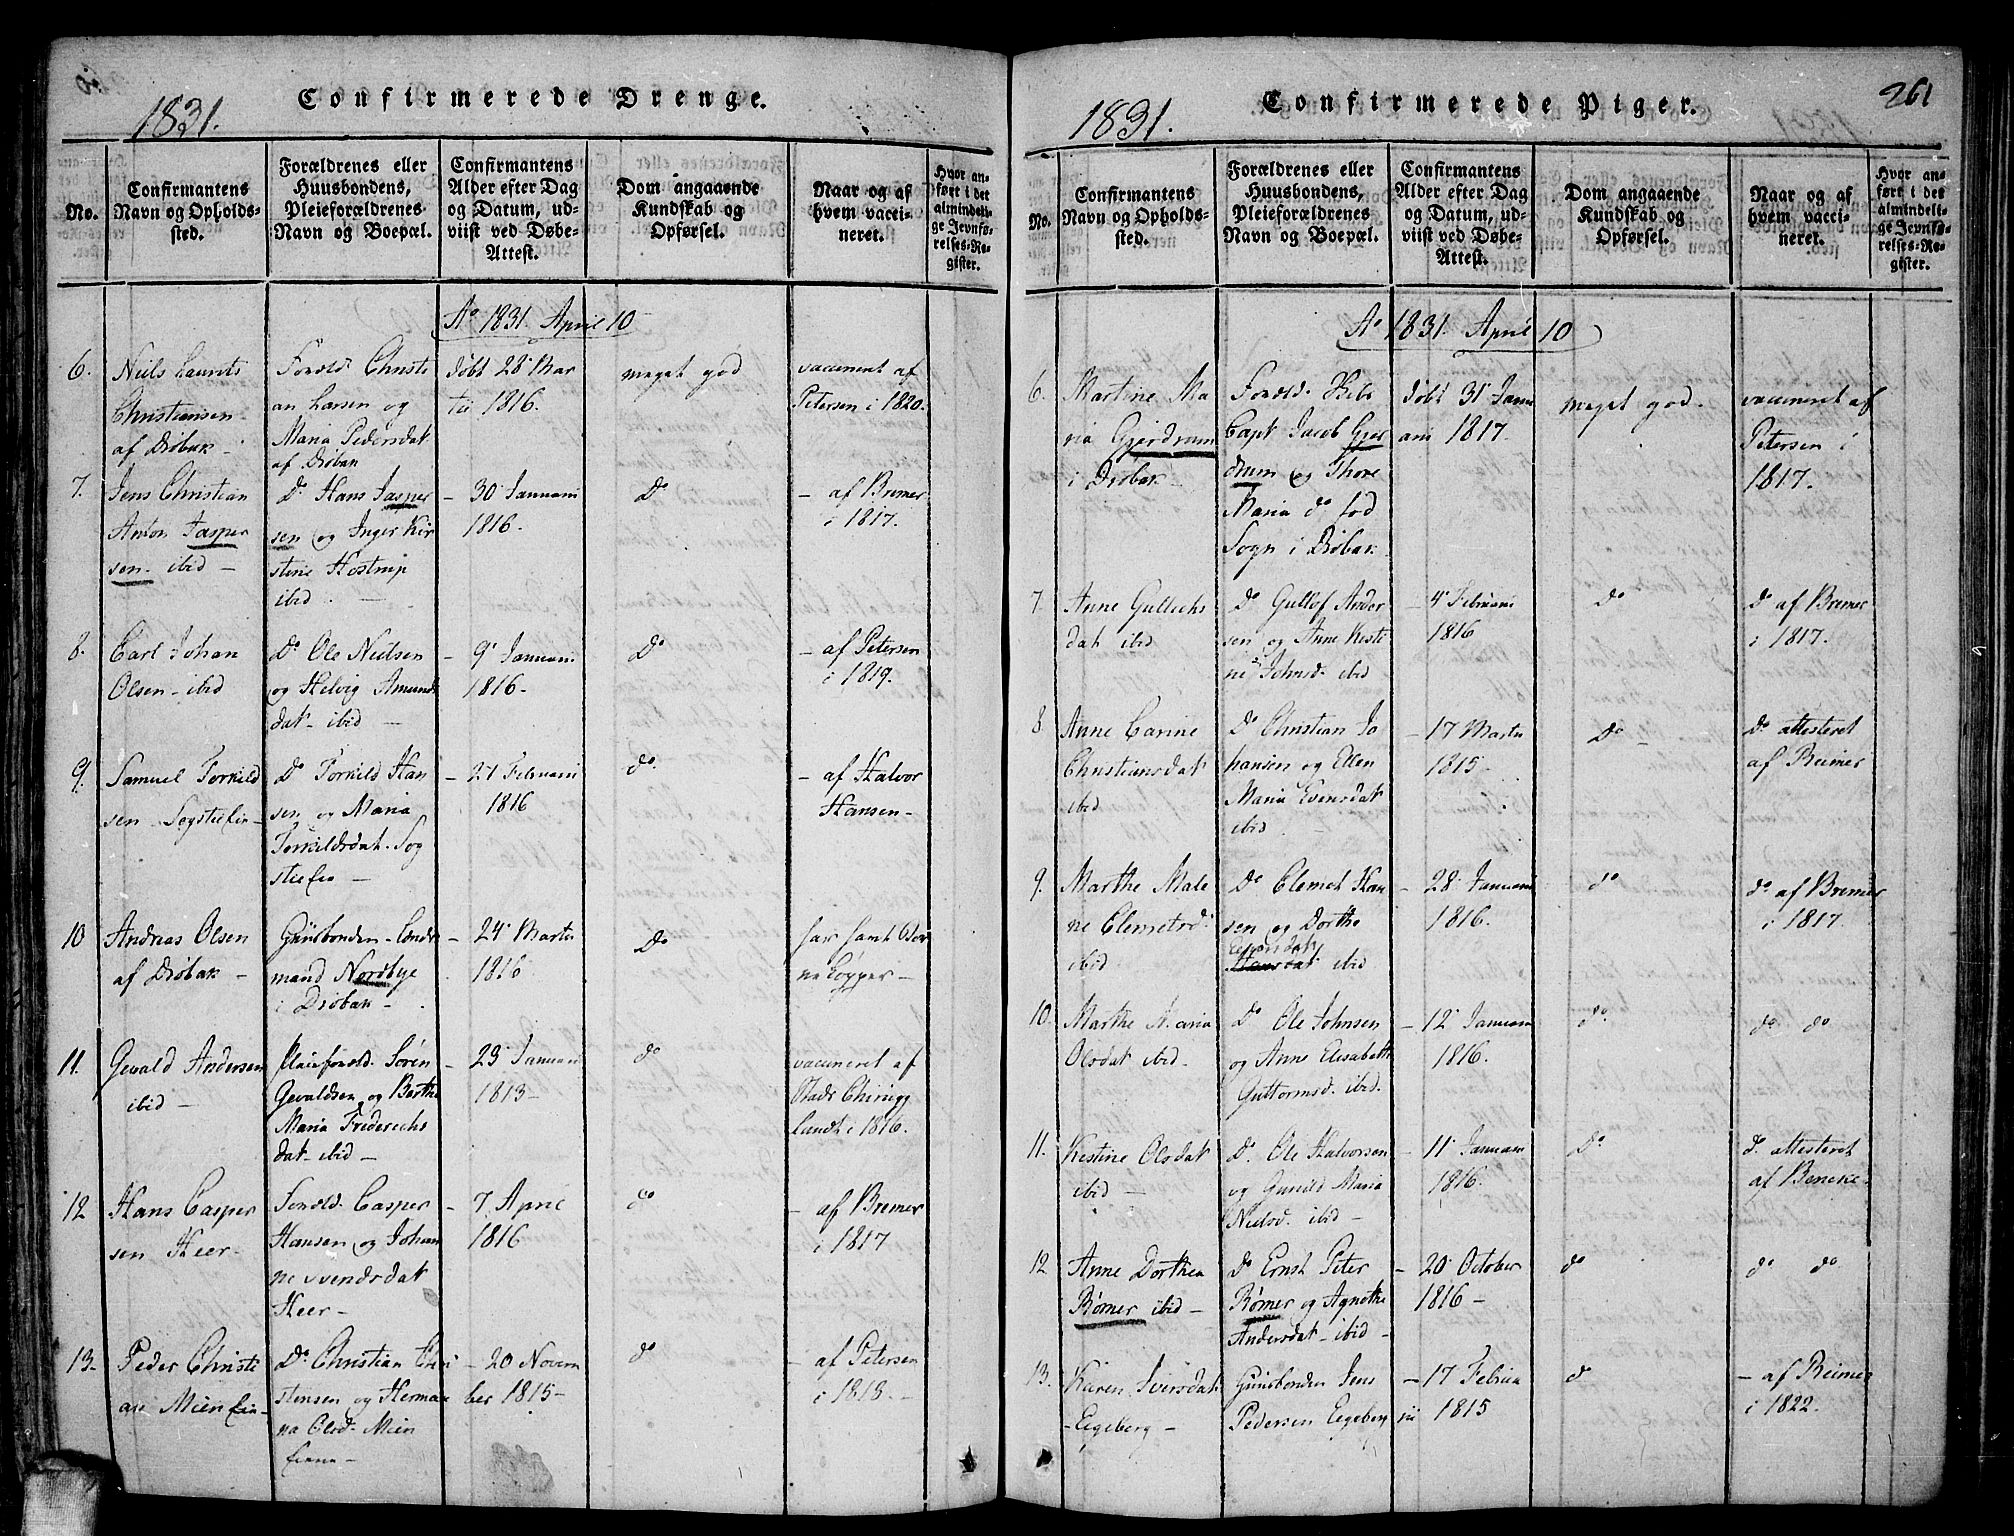 1831.
Confirmerede Drenge.
No.
Confirmantens
Navn og Opholds-
sted.
Forældrenes eller
Huusbondens,
Pleieforældrenes
Navn og Boepæl.
Confirmantens
Alder efter Dag
og Datum, ud-
viist ved Døbe-
Attest.
Dom angaaende
Kundskab og
Opførsel.
Naar og af
hvem vacci-
neret.
Hvor an-
ført i det
almindeli-
ge Jevnfø-
relses-Re-
gister.
Ao 1831. April 10
6.
Niels Laurits
Christiansen
af Drøbak
Foreld. Christi
an Larsen og
Maria Pedersdat
af Drøbak
døbt 28 Mar
tii 1816.
meget god
vaccineret af
Petersen i 1820.
7.
Jens Christian
Anton Jasper
sen. ibid –
Do Hans Jasper
sen og Inger Kir
stine Hostrup
ibid. –
– 30 Januarii
1816.
Do
– af Bremer
i 1817.
8.
Carl Johan
Olsen – ibid
Do Ole Nielsen
og Helvig Amunds
dat – ibid
– 9 Januarii
1816 –
Do
– af Petersen
i 1819.
9.
Samuel Torkild
sen –
Do Torkild Han
sen og Maria
Torkildsdat.
– 27 Februarii
1816
do
– af Halvor
Hansen –
10
Andreas Olsen
af Drøbak –
Huusbonden –
mand Nordbye
i Drøbak –
– 24 Martii
1816
Do
har havt
Kopper –
11.
Gevald Andersen
ibid –
Pleieforeld. Sören
Gevaldsen og Berthe
Maria Frederichs
dat – ibid –
– 23 Januari
1813 –
do
vaccineret af
Stads Chirurg
Lundt i 1816.
12
Hans Casper
sen Heer –
Foreld. Casper
Hansen og Johan
ne Svendsdat
Heer –
– 7 April
1816
do
– af Bremer
i 1817
13 –
Peder Christi
an
Do Christian Chri
stensen og Herma
na Olsd. Mien
– 20 Novem
ber 1815 –
do
– af Petersen
i 1818. –
1831.
Confirmerede Piger.
261
No.
Confirmantens
Navn og Opholds-
sted.
Forældrenes eller
Huusbondens,
Pleieforældrenes
Navn og Boepæl.
Confirmantens
Alder efter Dag
og Datum, ud-
viist ved Døbe-
Attest.
Dom angaaende
Kundskab og
Opførsel.
Naar og af
hvem vacci-
neret.
Hvor an-
ført i det
almindeli-
ge Jevnfø-
relses-Re-
gister.
Ao 1831. April 10
6.
Martine Ma
ria Gjerdrum
i Drøbak –
Foreld. Skibs
Capt Jacob Gjer
drum og Thore
Maria do fød
Sogn i Drøbak
døbt 31 Janu
arii 1817.
meget god.
vaccineret af
Petersen i
1817.
7.
Anne Gullichs
dat ibid
Do Gullof Ander
sen og Anne Kirsti
ne Johnsd. ibid
– 4 Februarii
1816
Do
do af Bremer
i 1817.
8
Anne Carine
Christiansdat
ibid
Do Christian Jo
hansen og Ellen
Maria Evensdat
ibid –
– 17 Martii
1815 –
Do
do attesteret
af Reimer
9.
Marthe Male
ne Clemetsd.
ibid
Do Clemet Han
sen og Dorthe
Hansdat ibid
– 28 Januarii
1816.
do
do af Bremer
i 1817.
10.
Marthe Maria
Olsdat ibid.
Do Ole Johnsen
og Anne Elisabeth
Guttormsd. ibid.
– 12 Januarii
1816.
do
do do
11.
Kistine Olsdat
ibid –
Do Ole Halvorsen
og Gunild Maria
Nielsd. ibid –
– 11 Januarii
1816.
Do
do attesteret
af Beneke.
12
Anne Dorthea
Rømer ibid –
Do Ernst Peter
Rømer og Agnethe
Andersdat – ibid –
– 20 October
1816 –
do
do do
13.
Karen Iversdat
– Eegeberg –
Huusbonden Jens
Pedersen Eegeberg
– 17 Februa
rii 1815
do
– af Reimer
i 1822.